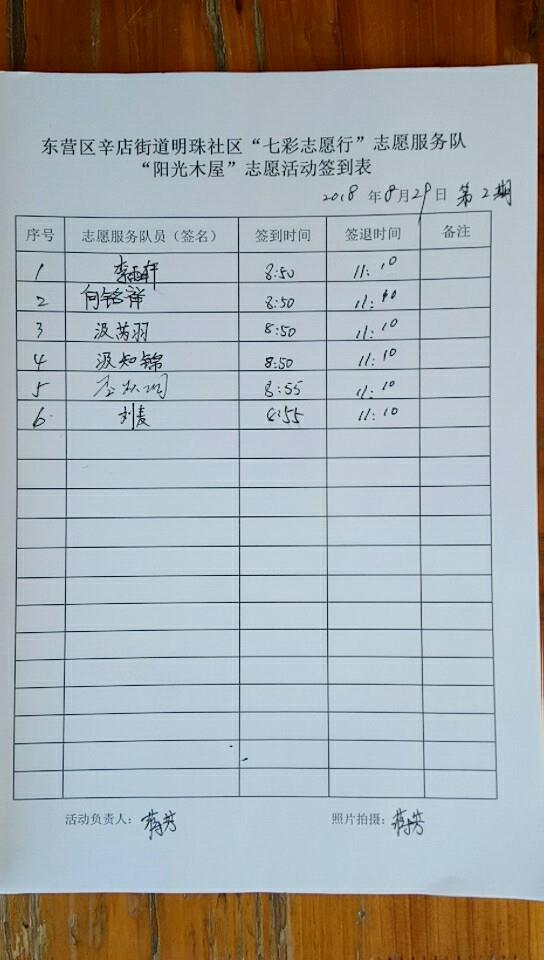 东营区辛店街道明珠社区“七彩志愿行”志愿服务队
“阳光木屋”志愿活动签到表
2018 年 8 月 29 日 第2期
序号 志愿服务队员（签名） 签到时间 签退时间 备注
1 李雨轩 8:50 11:10
2 向铭祥 8:50 11:10
3 汲芮羽 8:50 11:10
4 汲知锦 8:50 11:10
5 8:55 11:10
6 刘麦 8:55 11:10
活动负责人：蒋芳 照片拍摄：蒋芳